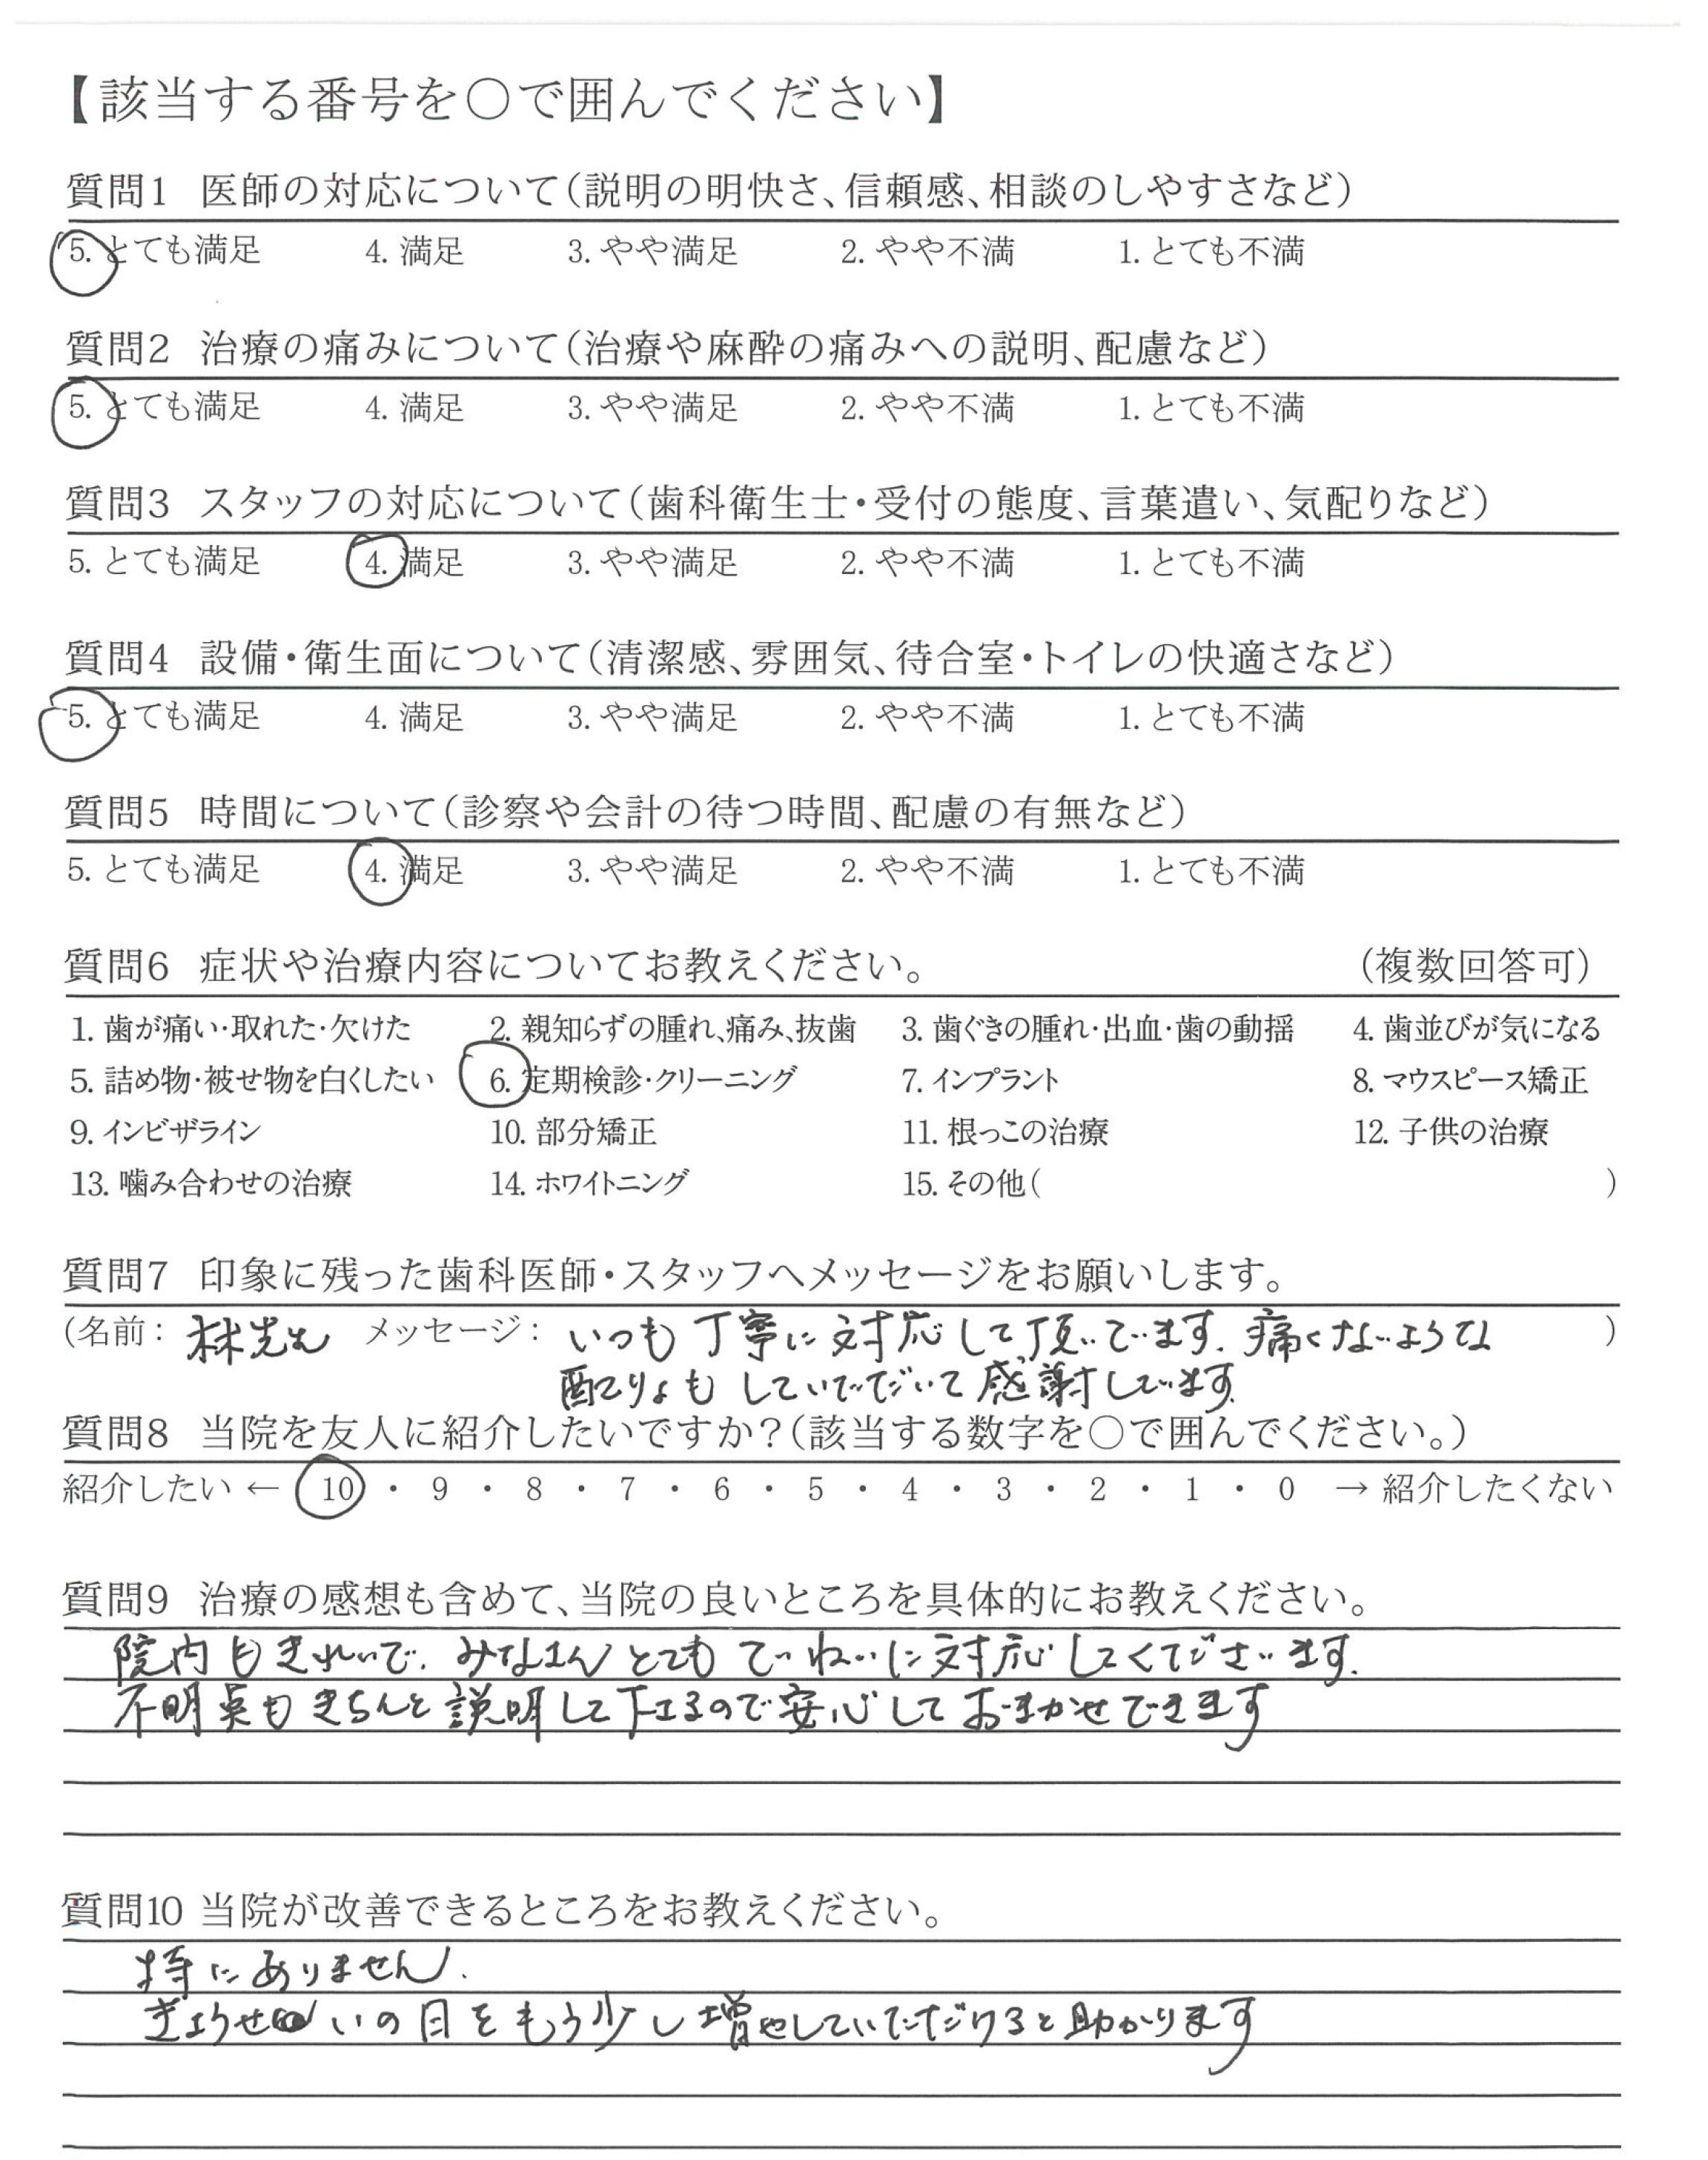 【該当する番号を○で囲んでください】
質問1 医師の対応について(説明の明快さ、信頼感、相談のしやすさなど)
5. とても満足 4. 満足 3. やや満足 2. やや不満 1. とても不満
質問2 治療の痛みについて(治療や麻酔の痛みへの説明、配慮など)
5. とても満足 4. 満足 3. やや満足 2. やや不満 1. とても不満
質問3 スタッフの対応について(歯科衛生士・受付の態度、言葉遣い、気配りなど)
5. とても満足 4. 満足 3. やや満足 2. やや不満 1. とても不満
質問4 設備・衛生面について(清潔感、雰囲気、待合室・トイレの快適さなど)
5. とても満足 4. 満足 3. やや満足 2. やや不満 1. とても不満
質問5 時間について(診察や会計の待つ時間、配慮の有無など)
5. とても満足 4. 満足 3. やや満足 2. やや不満 1. とても不満
質問6 症状や治療内容についてお教えください。 (複数回答可)
1. 歯が痛い・取れた・欠けた 2. 親知らずの腫れ、痛み、抜歯 3. 歯ぐきの腫れ・出血・歯の動揺 4. 歯並びが気になる
5. 詰め物・被せ物を白くしたい 6. 定期検診・クリーニング 7. インプラント 8. マウスピース矯正
9. インビザライン 10. 部分矯正 11. 根っこの治療 12. 子供の治療
13. 噛み合わせの治療 14. ホワイトニング 15. その他( )
質問7 印象に残った歯科医師・スタッフへメッセージをお願いします。
(名前: 林先生 メッセージ: いつも丁寧に対応して頂いています. 痛くないような )
配りょもしていただいて感謝しています.
質問8 当院を友人に紹介したいですか?(該当する数字を○で囲んでください。)
紹介したい ← 10 ・ 9 ・ 8 ・ 7 ・ 6 ・ 5 ・ 4 ・ 3 ・ 2 ・ 1 ・ 0 → 紹介したくない
質問9 治療の感想も含めて、当院の良いところを具体的にお教えください。
院内もきれいで. みなさんとてもていねいに対応してくださいます.
不明点もきちんと説明して下さるので安心しておまかせできます
質問10 当院が改善できるところをお教えください。
特にありません.
きょうせいの日をもう少し増やしていただけると助かります